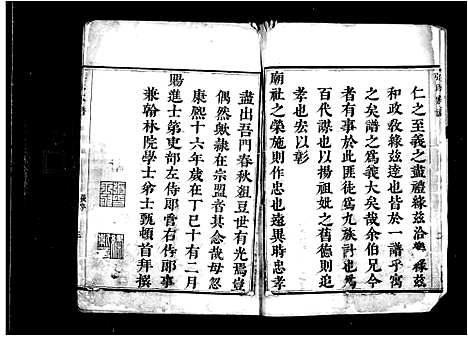 仁之至義之盡禮緣茲洽樂緣茲
和政敎緣茲達也皆於一譜乎寓
之矣譜之爲義大矣哉余伯兄今
者有事於此匪徒爲九族示親爲
百代謀也以揚祖妣之舊德則追
孝也宏以彰
廟祉之榮施則作忠也遠異時忠孝
盡出吾門春秋俎豆世有光焉豈
偶然歟隷在宗盟者其念哉毋忽
康熙十六年歲在丁巳十有二月
賜進士第吏部左侍郎管右侍郎事
兼翰林院學士弟士甄頓首拜撰